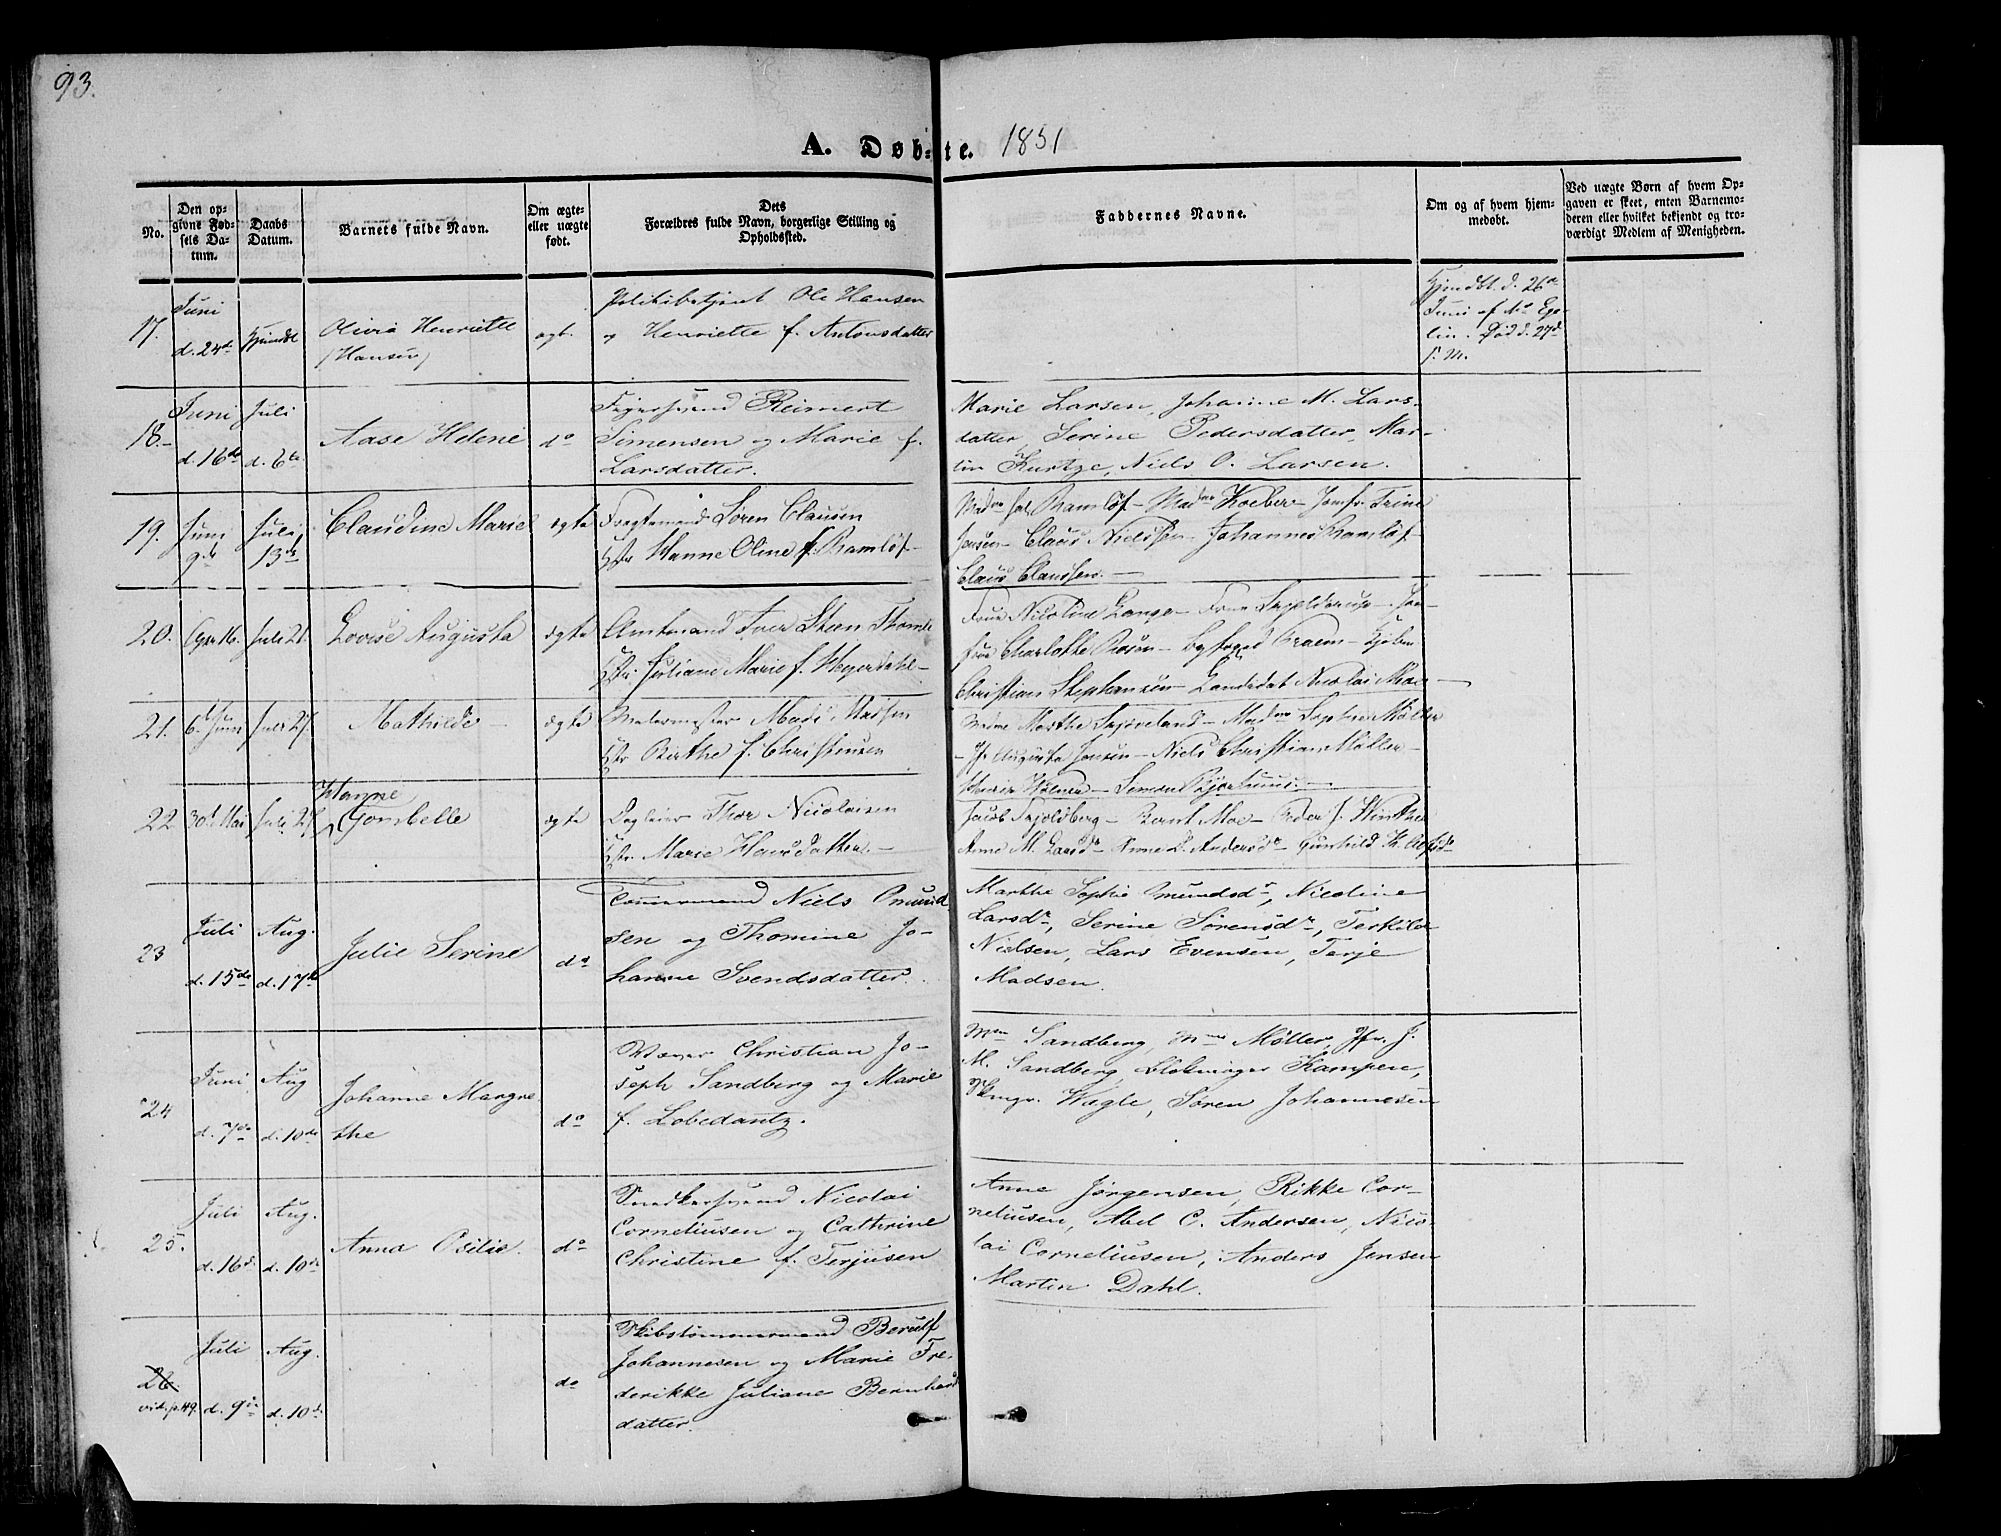 93.
A. Døb-te. 1851
No.
Den op-
givne Fød-
sels Da-
tum.
Daabs
Datum.
Barnets fulde Navn.
Om ægte-
eller uægte
født.
Dets
Forældres fulde Navn, borgerlige Stilling og
Opholdssted.
Faddernes Navne.
Om og af hvem hjem-
medøbt.
Ved uægte Børn af hvem Op-
gaven er skeet, enten Barnemo-
deren eller hvilket bekjendt og tro-
værdigt Medlem af Menigheden.
17.
Juni
d. 24de
Hjemdbt
Olivia Henriette
(Hansen)
ægt.
Politibetjent Ole Hansen
og Henriette f. Antonsdatter
Hjemdbt. d. 26de
Juni af
Død d. 27d
s. M.
18.-
Juni
d. 16de
Juli
d. 6te
Aase Helene
do
Reimert
Simensen og Marie f.
Larsdatter.
Marie Larsen, Johanne M. Lars-
datter, Serine Pedersdatter, Mar-
tin Kurtze, Niels O. Larsen.
19.
Juni
9de
Juli
13de
Claudine Marie
ægte
Fragtemand Søren Clausen
Hstr Hanne Oline f. Ramløf-
Madme Ramløf - Madme Koeber - Jomfr. Trine
Jensen - Claus Nielssen - Johannes Ramløf -
Claus Claussen. -
20.
Apr 16.
Juli 21.
Lovise Augusta
ægte
Amtmand Iver Steen Thomle
Hstr. Juliane Marie f. Heyerdahl -
Frue Nicoline Lange - Frue Skjelderup - Jom-
frue Charlotte Rosen - Byfoged Praem - Kjøbm
Christian Stephansen - Candidat Nicolai Moe -
21.
6. Juni
Juli 27.
Mathilde -
ægte
Malermester Mads Madsen
Hstr Birthe f. Christensen
Madme Marthe Skjøveland - Madme Sophie Møller
- Jfr Augusta Jensen - Niels Christian Møller -
22
30te Mai
Juli 27.
Hanne
Gombelle
ægte
Dagleier Thor Nicolaisen
Hstr. Marie Hansdatter. -
Jacob Skjoldberg - Bernt Moe - Peder J. Winther
Anne M. Larsdr - Anne L. Andersdr - Gunhild K. Olefsdr
23
Juli
d. 15de
Aug.
d. 17de
Julie Serine
do
Tømmermand Niels Omund
sen og Thomine Jo-
hanne Svendsdatter.
Marthe Sophie Omundsdr, Nicoline
Larsdr, Serine Sørensdr, Terkild
Nielsen, Lars Evensen, Terje
Madsen.
24
Juni
d. 7de
Aug
d. 10de
Johanne Margre
the
do
Væver Christian Jo-
seph Sandberg og Marie
f. Lobedantz.
Mme Sandberg, Mme Møller, Jfr. J.
M. Sandberg, Kampen,
Wagle, Søren Johannesen
25.
Juli
d. 16d.
Aug.
d. 10de
Anna Osilie.
do
Snedkersvend Nicolai
Corneliusen og Cathrine
Christine f. Terjusen
Anne Jørgensen, Rikke Cor-
neliusen, Abel C. Andersen, Nico-
lai Corneliusen, Anders Jensen
Martin Dahl.
26
vid. p. 49.
Juli
d. 9de
Aug.
d. 10de
do
Skibstømmermand Berulf
Johannesen og Marie Fre-
derikke Juliane Bernhard
datter